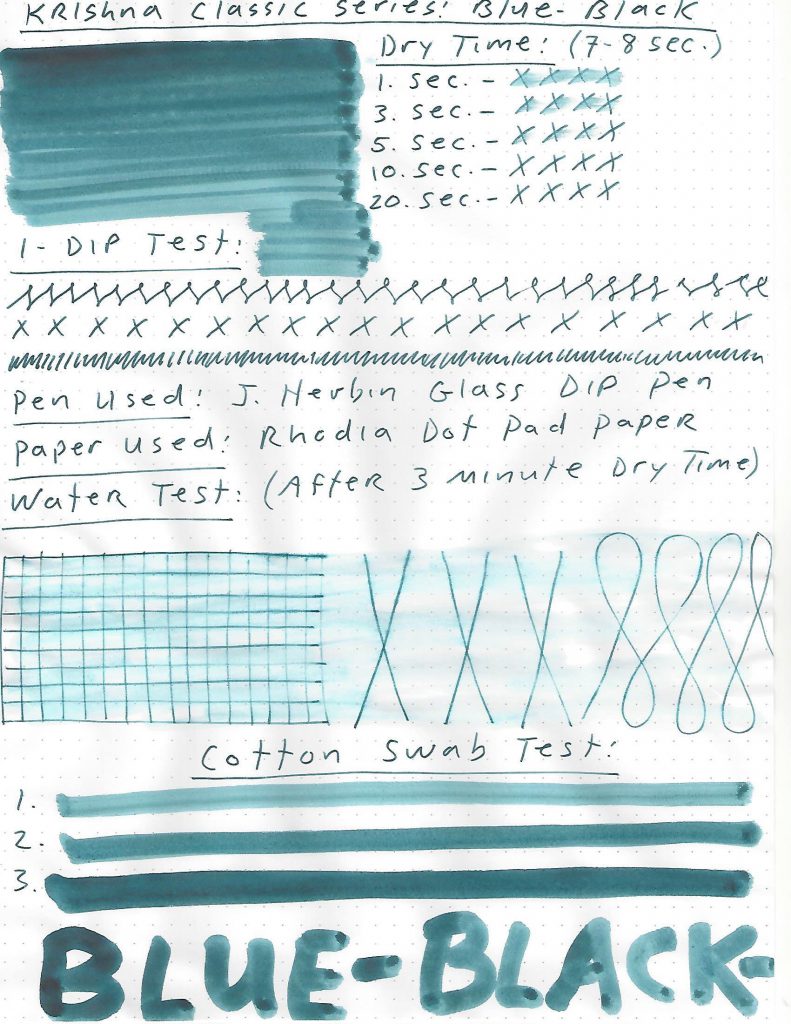 Krishna Classic Series: Blue-Black
Dry Time: (7-8 sec.)
1. sec. - x x x x
3. sec. - x x x x
5. sec. - x x x x
10. sec. - x x x x
20. sec. - x x x x
1-Dip Test:
x x x x x x x x x x x x x x x x x x x
Pen Used: J. Herbin Glass Dip Pen
Paper Used: Rhodia Dot Pad Paper
Water Test: (After 3 minute Dry Time)
Cotton Swab Test:
1.
2.
3.
BLUE-BLACK-